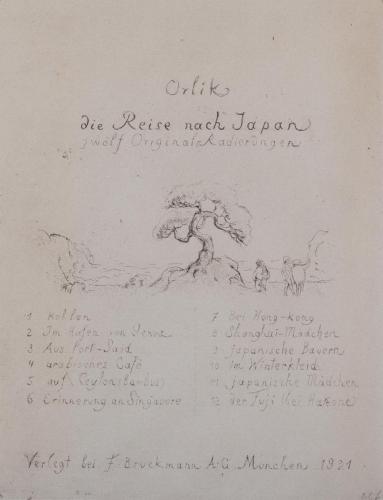 Orlik
die Reise nach Japan
zwölf Original Radierungen
1 Kohlen
2 Im Hafen von Genua
3 Aus Port-Said
4 arabisches Café
5 auf Ceylon (Bambus)
6 Erinnerung an Singapore
7 Bei Hong-kong
8 Shanghai-Mädchen
9 japanische Bauern
10 Im Winterkleid
11 japanische Mädchen
12 der Fuji (bei Hakone)
Verlegt bei F. Bruckmann A.G. München 1921